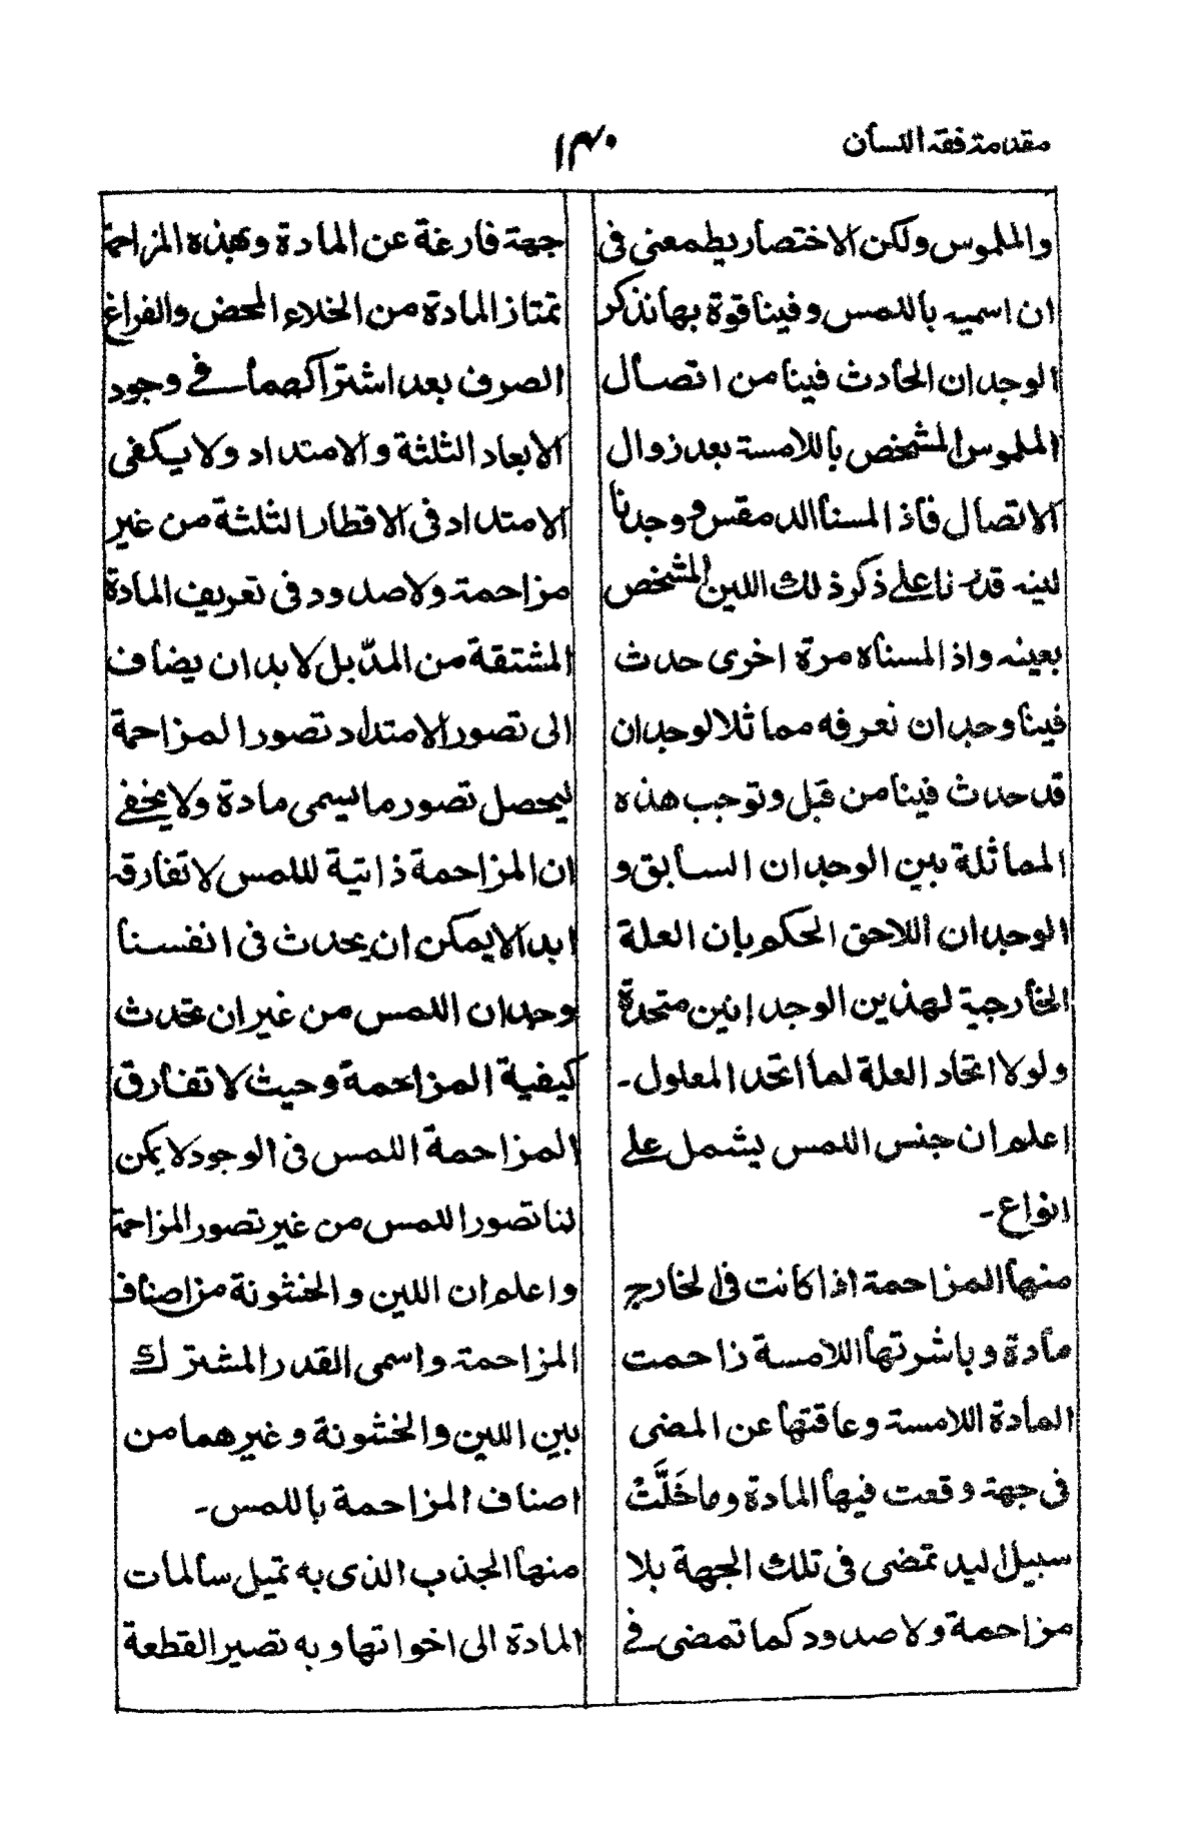 مقدمة فقه اللسان
١٣٠
والملموس ولكن الاختصار يطمعنى فى
ان اسميه باللمس وفينا قوة بها نذكر
الوجدان الحادث فينا من اتصال
الملموس المشخص باللامسة بعد زوال
الاتصال فاذا لمسنا الدمقس ووجدنا
لينه قدرنا على ذكر ذلك اللين المشخص
بعينه واذا لمسناه مرة اخرى حدث
فينا وجدان نعرفه مماثلا لوجدان
قد حدث فينا من قبل وتوجب هذه
المماثلة بين الوجدان السابق و
الوجدان اللاحق الحكم بان العلة
الخارجية لهذين الوجدانين متحدة
ولولا اتحاد العلة لما اتحد المعلول ـ
اعلم ان جنس اللمس يشمل على
انواع ـ
منها المزاحمة اذا كانت فى الخارج
مادة وباشرتها اللامسة زاحمت
المادة اللامسة وعاقتها عن المضى
فى جهة وقعت فيها المادة وما خَلَّتْ
سبيل اليد تمضى فى تلك الجهة بلا
مزاحمة ولا صدود كما تمضى فى
جهة فارغة عن المادة وبهذه المزاحمة
تمتاز المادة من الخلاء المحض والفراغ
الصرف بعد اشتراكهما فى وجود
الابعاد الثلثة والامتداد ولا يكفى
الامتداد فى الاقطار الثلثة من غير
مزاحمة ولا صدود فى تعريف المادة
المشتقة من المدّ بل لا بد ان يضاف
الى تصور الامتداد تصور المزاحمة
ليحصل تصور ما يسمى مادة ولا يخفى
ان المزاحمة ذاتية لللمس لا تفارقه
ابدا لا يمكن ان يحدث فى انفسنا
وجدان اللمس من غير ان تحدث
كيفية المزاحمة وحيث لا تفارق
المزاحمة اللمس فى الوجود لا يمكن
لنا تصور اللمس من غير تصور المزاحمة
واعلم ان اللين والخشونة من اصناف
المزاحمة واسمى القدر المشترك
بين اللين والخشونة وغيرهما من
اصناف المزاحمة باللمس ـ
منها الجذب الذى به تميل سالمات
المادة الى اخواتها وبه تصير القطعة